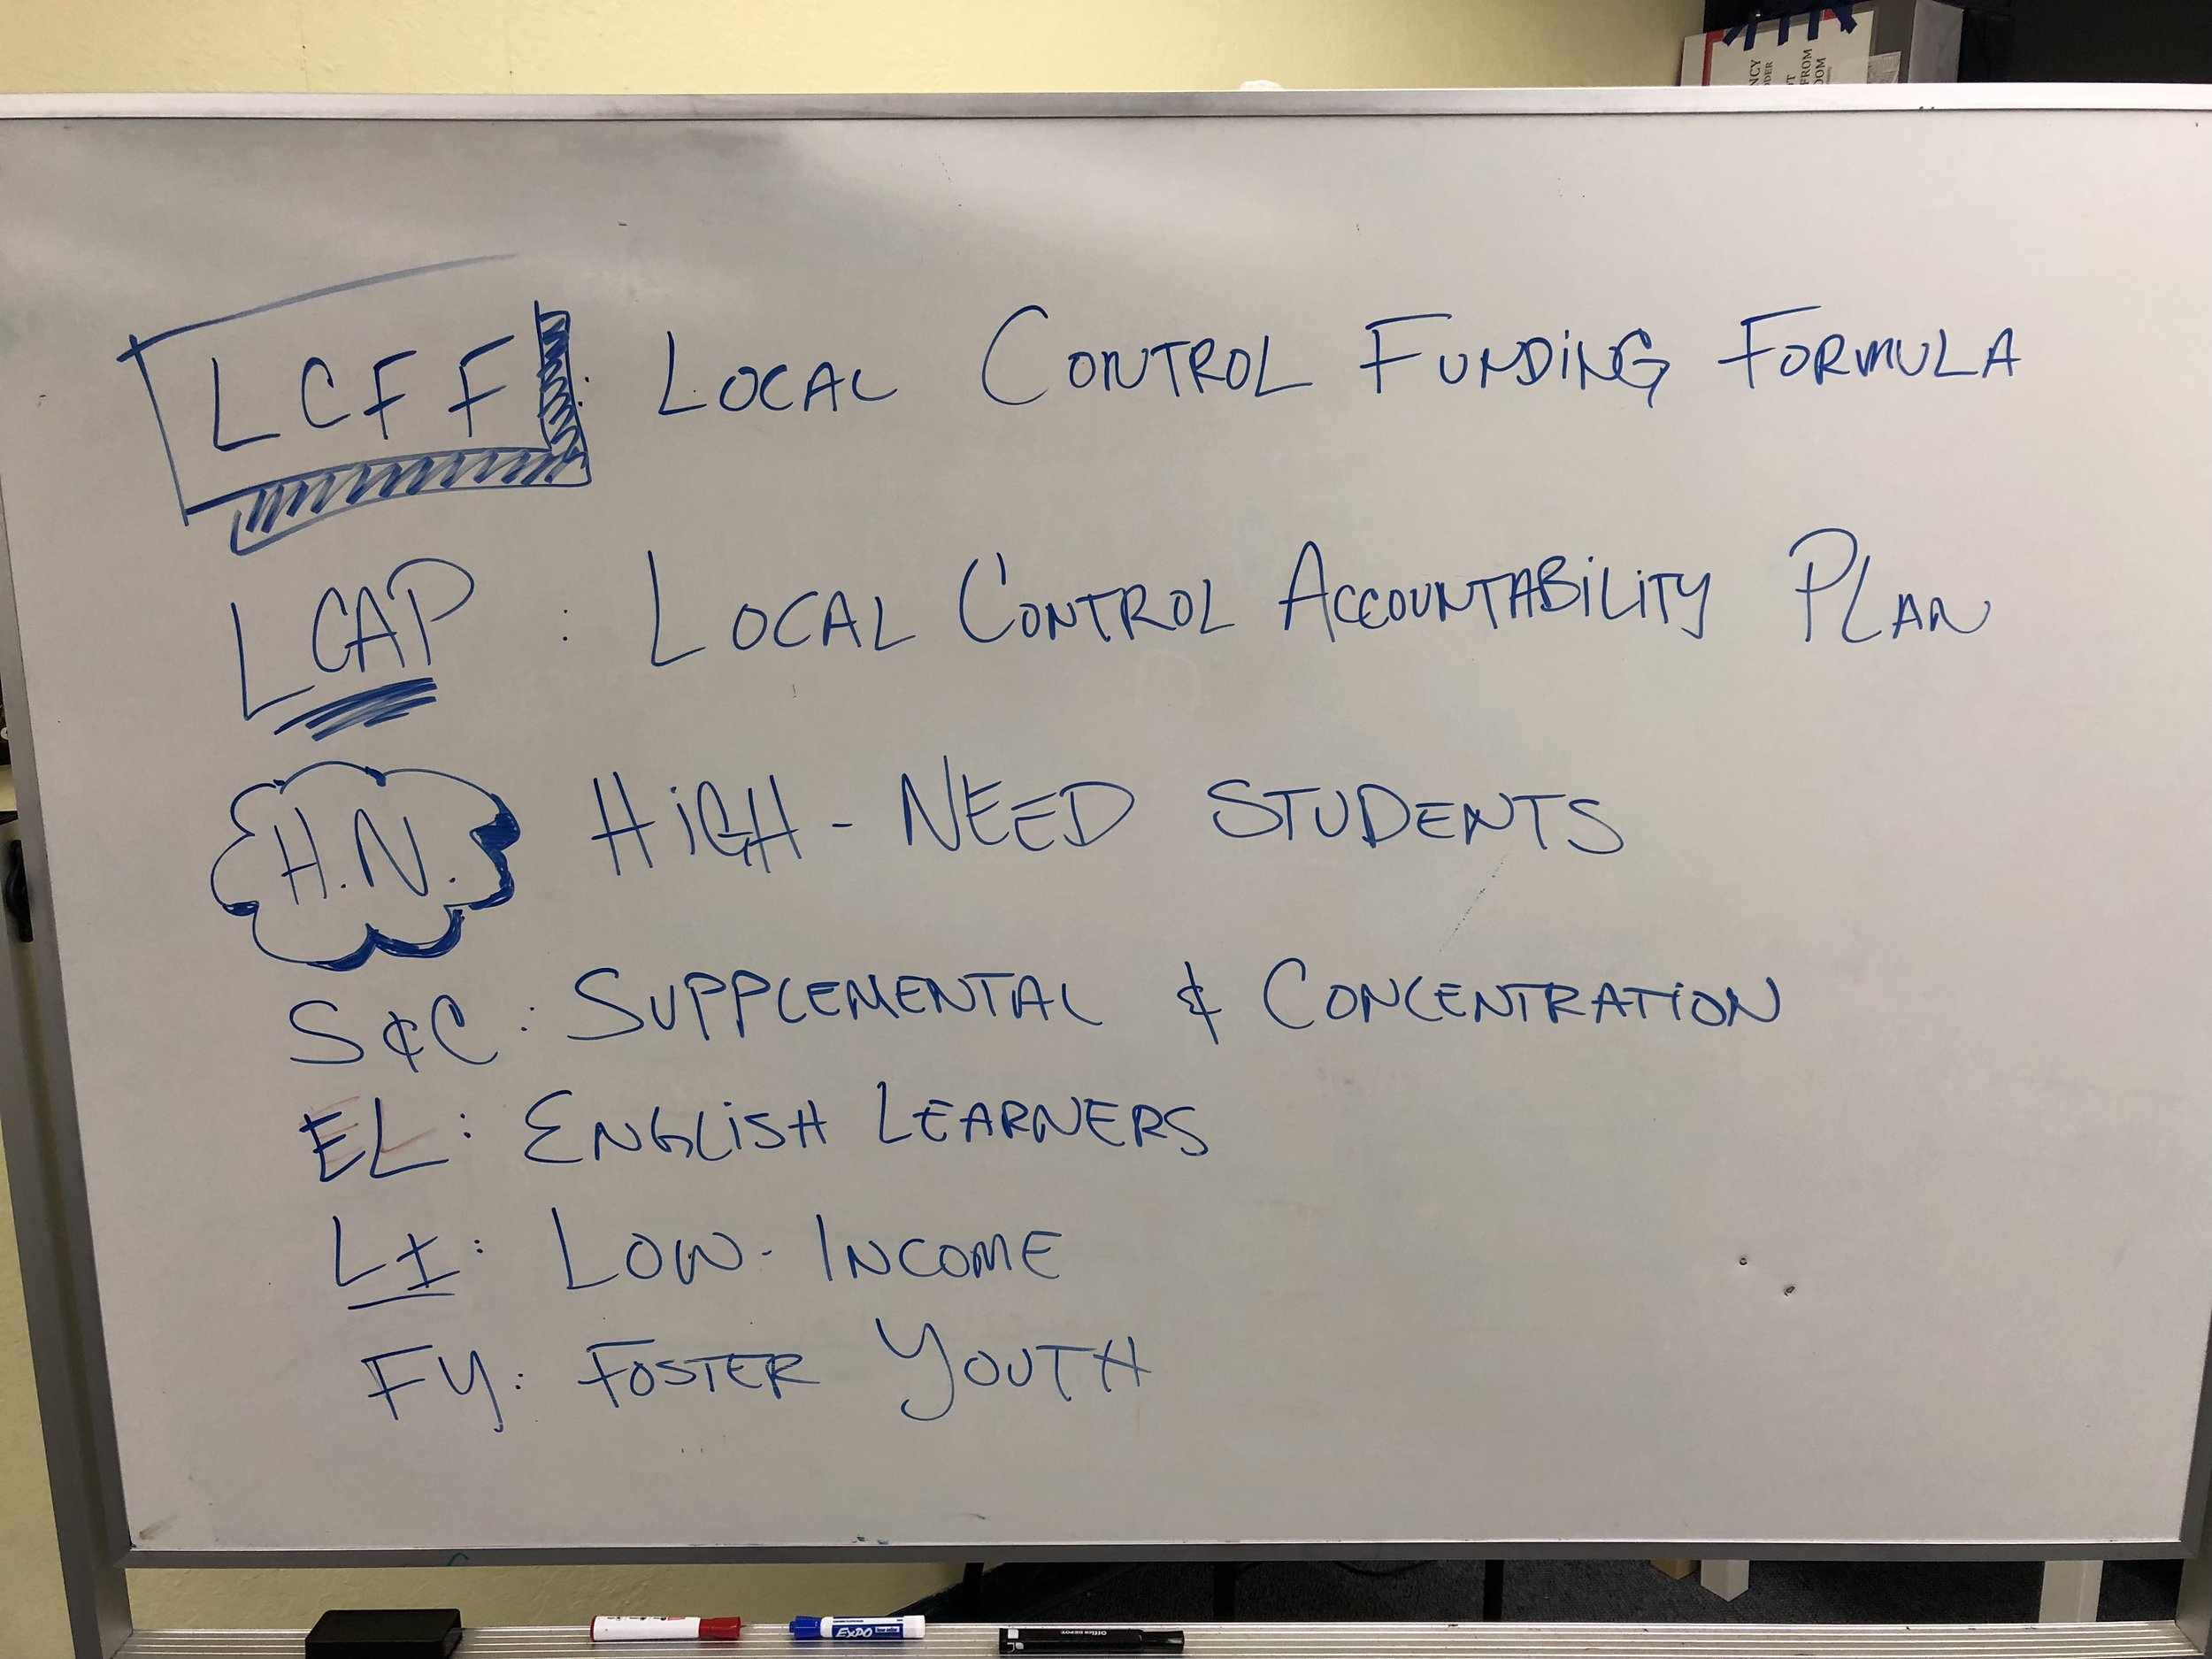 NCY
DER
OT
FROM
OOM
LCFF : LOCAL CONTROL FUNDING FORMULA
LCAP : LOCAL CONTROL ACCOUNTABILITY PLAN
H.N. HIGH-NEED STUDENTS
S&C : SUPPLEMENTAL & CONCENTRATION
EL : ENGLISH LEARNERS
LI : LOW-INCOME
FY : FOSTER YOUTH
EXPO
Office DEPOT